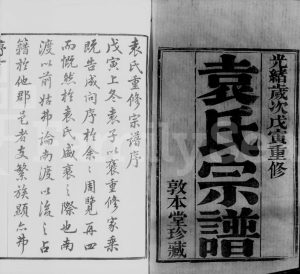 光緒歲次戊寅重修
袁氏宗譜
敦本堂珍藏
袁氏重修宗譜序
戊寅上冬袁子以裒重修家乘
既告成問序於余余周覽再四
而慨然於袁氏盛衰之際也南
渡以前姑弗論南渡以後之占
籍於他郡邑者支繁族顯亦弗